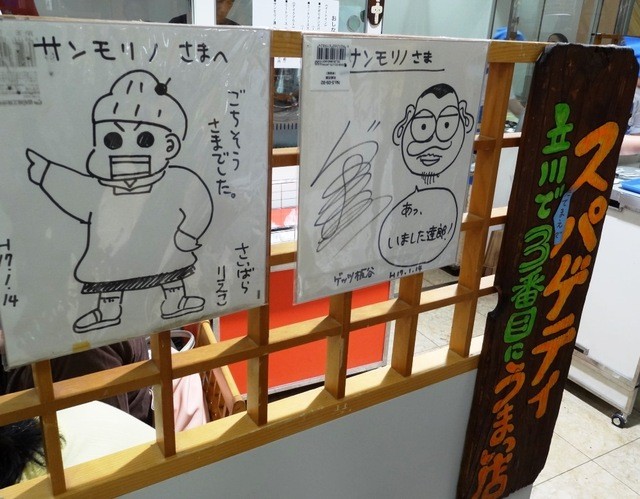 サンモリノ さまへ
ごちそう
さまでした。
さいばら
りえこ
H17.1.14
サンモリノ さま
あっ、
いました達郎!
ゲッツ板谷
H17.1.14
スパゲティ
立川で
3番目に
うまい店